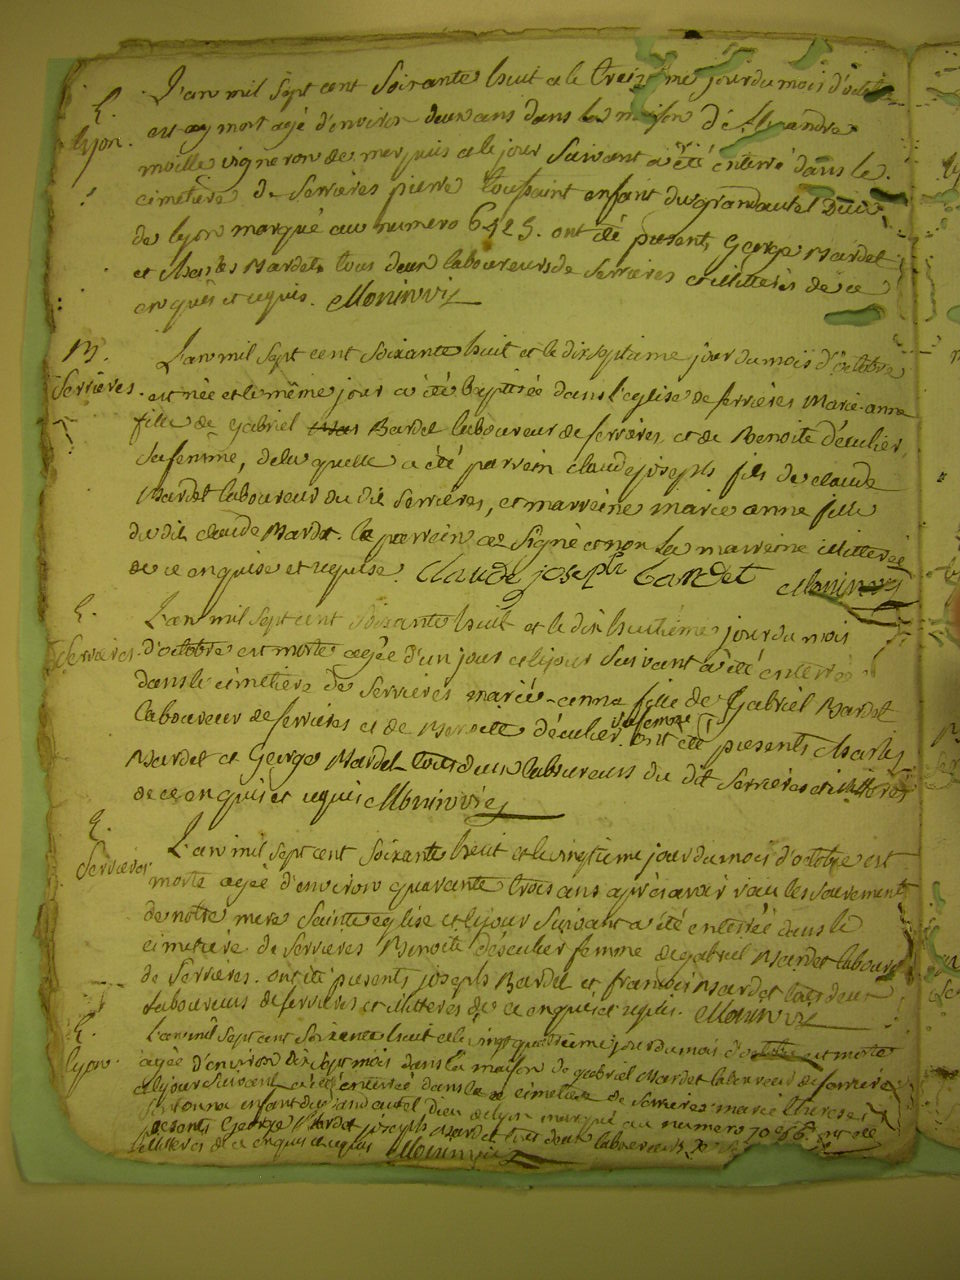 L'an mil sept cent soixante huit et le treizieme jour du mois d'octobre
E.
Lyon.
est ay mort agé d'environ deux ans dans la maison d'Alexandre
moille vigneron de merpuis et le jour suivant a été enterré dans le
cimetiere de Serrières pierre toussaint enfant du grand autel Dieu
de lyon marqué au numero 6425. ont été presents George Bardet
et Charles Bardet tous deux laboureurs de Serrières et illitterés de ce
enquis et requis. Moninvis
B.
Serrières.
L'an mil sept cent soixante huit et le dix septieme jour du mois d'octobre
est née et le même jour a été baptisée dans l'eglise de serrières Marie-anne
fille de gabriel Bardet laboureur de serrières, et de Benoite d'éculier
sa femme, de laquelle a été parrein claude joseph fils de claude
Bardet laboureur du dit Serrières, et marreine marie anne fille
du dit claude Bardet. le parrein a signé et non la marreine illitterée
de ce enquise et requise. Claude joseph bardet Moninvis
E.
Serrières
L'an mil sept cent soixante huit et le dix huitiéme jour du mois
d'octobre est morte agée d'un jour et le jour suivant a été enterrée
dans le cimetiere de Serrières marie-anne fille de Gabriel Bardet
laboureur de serrières et de Benoite d'éculier sa femme. ont été presents Charles
Bardet et George Bardet tous deux laboureurs du dit Serrières et illiterés
de ce enquis et requis Moninvis
E.
Serrières
L'an mil sept cent soixante huit et le vingtieme jour du mois d'octobre est
morte agée d'environ quarante trois ans après avoir reçu les sacrements
de notre mere Sainte eglise et le jour suivant a été enterrée dans le
cimetiere de Serrières Benoite déseculier femme de gabriel Bardet laboureur
de Serrières. ont été presents joseph Bardet et francois Bardet tous deux
laboureurs de serrieres et illiteres de ce enquis et requis. Moninvis
E.
Lyon.
L'an mil sept cent soixante huit et le vingt quatrieme jour du mois d'octobre est morte
agée d'environ dix sept mois dans la maison de gabriel Bardet laboureur de serrieres
et le jour suivant a été enterrée dans le cimetiere de serrieres marie therese
enfant du grand autel Dieu de lyon marqué au numero ont été
presents George Bardet joseph Bardet tous deux laboureurs
illiteres de ce enquis et requis Moninvis